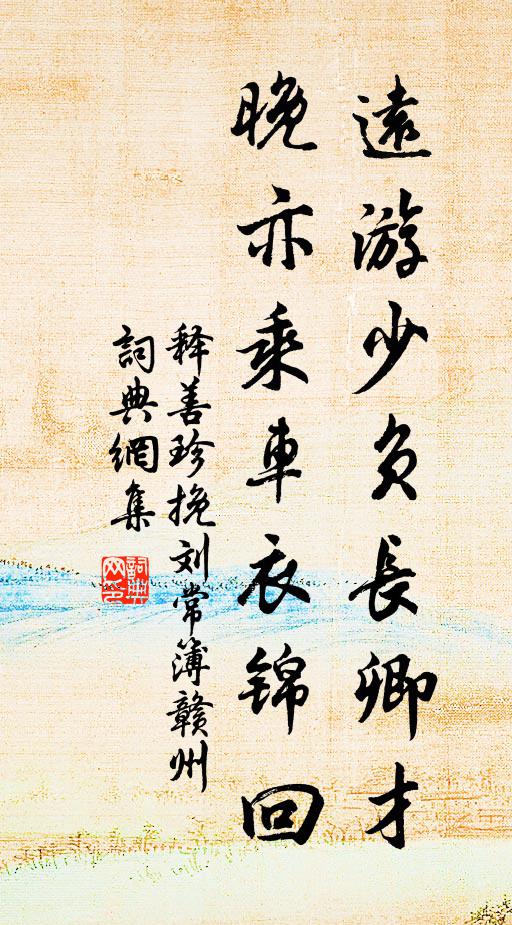 遠游少负長卿才
晚亦乘車衣錦回
释善珍挽刘常簿赣州
詞典網集